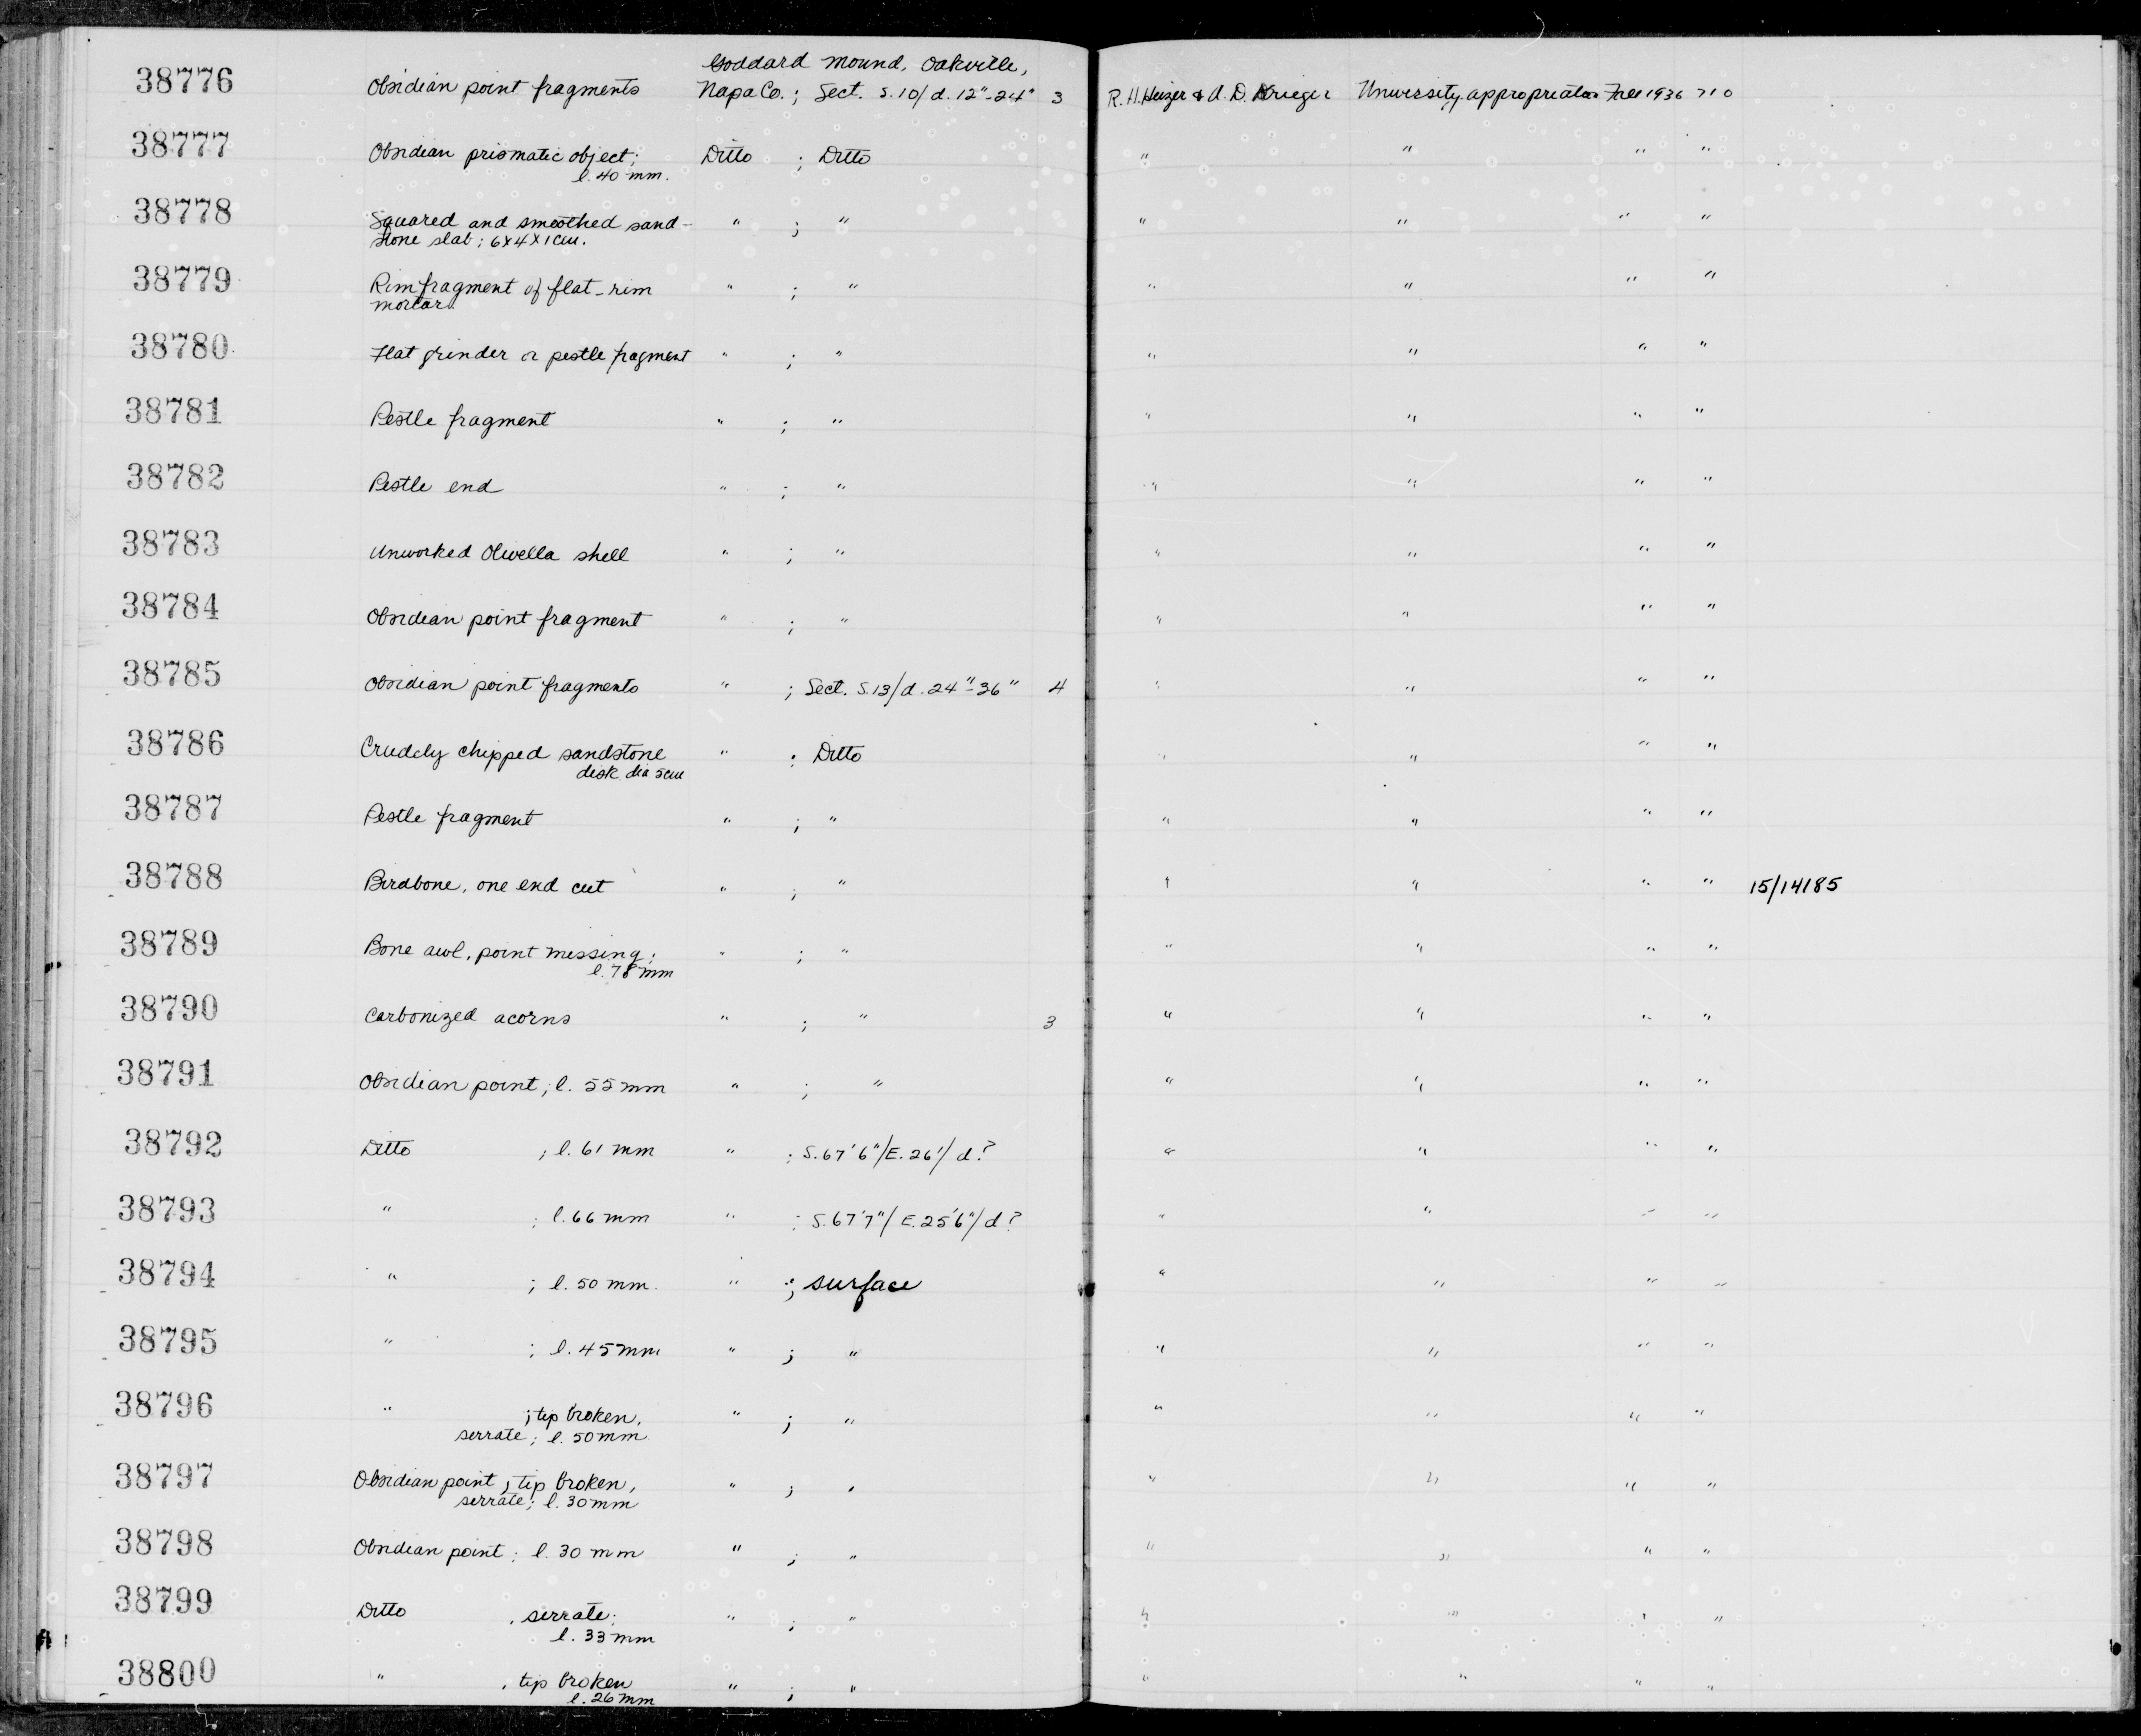 Goddard Mound, Oakville,
38776 Obsidian point fragments Napa Co. ; Sect. S.10/d. 12"-24" 3 R. H. Heizer & A. D. Krieger University appropriation Fall 1936 710
38777 Obsidian prismatic object; Ditto ; Ditto " " " "
l. 40 mm.
38778 Squared and smoothed sand- " ; " " " " "
stone slab; 6x4x1 cm.
38779 Rim fragment of flat-rim " ; " " " " "
mortar
38780 Flat grinder or pestle fragment " ; " " " " "
38781 Pestle fragment " ; " " " " "
38782 Pestle end " ; " " " " "
38783 Unworked Olivella shell " ; " " " " "
38784 Obsidian point fragment " ; " " " " "
38785 Obsidian point fragments " ; Sect. S.13/d. 24"-36" 4 " " " "
38786 Crudely chipped sandstone " ; Ditto " " " "
disk. dia 5cm
38787 Pestle fragment " ; " " " " "
38788 Birdbone, one end cut " ; " " " " " 15/14185
38789 Bone awl, point missing; " ; " " " " "
l. 78 mm
38790 Carbonized acorns " ; " 3 " " " "
38791 Obsidian point; l. 55 mm " ; " " " " "
38792 Ditto ; l. 61 mm " ; S.67'6"/E.26'/d? " " " "
38793 " ; l. 66 mm " ; S.67'7"/E.25'6"/d? " " " "
38794 " ; l. 50 mm. " ; surface " " " "
38795 " ; l. 45 mm. " ; " " " " "
38796 " ; tip broken, " ; " " " " "
serrate; l. 50 mm.
38797 Obsidian point; tip broken, " ; " " " " "
serrate; l. 30 mm
38798 Obsidian point; l. 30 mm " ; " " " " "
38799 Ditto , serrate; " ; " " " " "
l. 33 mm
38800 " , tip broken " ; " " " " "
l. 26 mm